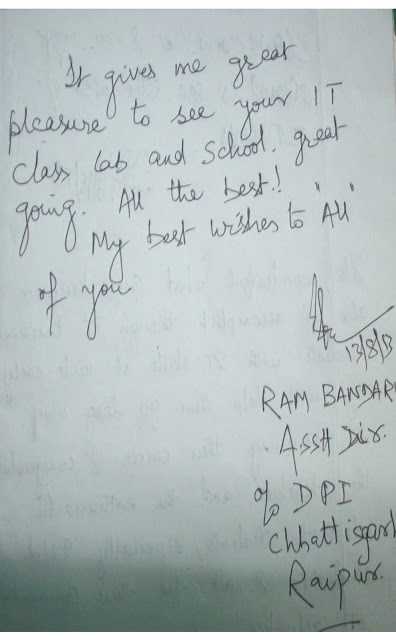 It gives me great
pleasure to see your IT
class lab and School. great
going. All the best.!
My best wishes to "All"
of you
13/8/13
RAM BANDARI
Asst Dir.
o/o DPI
Chhattisgarh
Raipur.